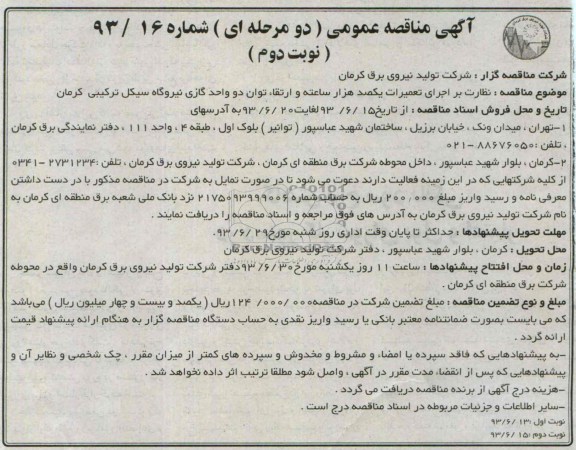 آگهی مناقصه عمومی ( دو مرحله ای ) شماره ۱۶ /۹۳
( نوبت دوم )
شرکت مناقصه گزار : شرکت تولید نیروی برق کرمان
موضوع مناقصه : نظارت بر اجرای تعمیرات یکصد هزار ساعته و ارتقاء توان دو واحد گازی نیروگاه سیکل ترکیبی کرمان
تاریخ و محل فروش اسناد مناقصه : از تاریخ۱۵ /۶ /۹۳ لغایت۲۰ /۶ /۹۳به آدرسهای
۱-تهران ، میدان ونک ، خیابان برزیل ، ساختمان شهید عباسپور ( توانیر ) بلوک اول ، طبقه ۴ ، واحد ۱۱۱ ، دفتر نمایندگی برق کرمان
، تلفن :۸۸۶۷۶۰۵۰ -۰۲۱
۲-کرمان ، بلوار شهید عباسپور ، داخل محوطه شرکت برق منطقه ای کرمان ، شرکت تولید نیروی برق کرمان ، تلفن :۲۷۳۱۲۳۴ -۰۳۴۱
از کلیه شرکتهایی که در این زمینه فعالیت دارند دعوت می شود تا در صورت تمایل به شرکت در مناقصه مذکور با در دست داشتن
معرفی نامه و رسید واریز مبلغ ۲۰۰/۰۰۰ ریال به حساب شماره ۲۱۷۵۰۹۳۹۹۹۰۰۶ نزد بانک ملی شعبه برق منطقه ای کرمان به
نام شرکت تولید نیروی برق کرمان به آدرس های فوق مراجعه و اسناد مناقصه را دریافت نمایند .
مهلت تحویل پیشنهادها : حداکثر تا پایان وقت اداری روز شنبه مورخ۲۹ /۶ /۹۳.
محل تحویل : کرمان ، بلوار شهید عباسپور ، دفتر شرکت تولید نیروی برق کرمان
زمان و محل افتتاح پیشنهادها : ساعت ۱۱ روز یکشنبه مورخ۳۰ /۶ /۹۳دفتر شرکت تولید نیروی برق کرمان واقع در محوطه
شرکت برق منطقه ای کرمان .
مبلغ و نوع تضمین مناقصه : مبلغ تضمین شرکت در مناقصه۰۰۰/ ۰۰۰/ ۱۲۴ریال ( یکصد و بیست و چهار میلیون ریال ) می‌باشد
که می بایست بصورت ضمانتنامه معتبر بانکی یا رسید واریز نقدی به حساب دستگاه مناقصه گزار به هنگام ارائه پیشنهاد قیمت
ارائه گردد .
-به پیشنهادهایی که فاقد سپرده یا امضاء و مشروط و مخدوش و سپرده های کمتر از میزان مقرر ، چک شخصی و نظایر آن و
پیشنهادهایی که پس از انقضاء مدت مقرر در آگهی ، واصل شود مطلقا ترتیب اثر داده نخواهد شد .
-هزینه درج آگهی از برنده مناقصه دریافت می گردد .
-سایر اطلاعات و جزئیات مربوطه در اسناد مناقصه درج است .
نوبت اول :۱۳ /۶ /۹۳
نوبت دوم :۱۵ /۶ /۹۳